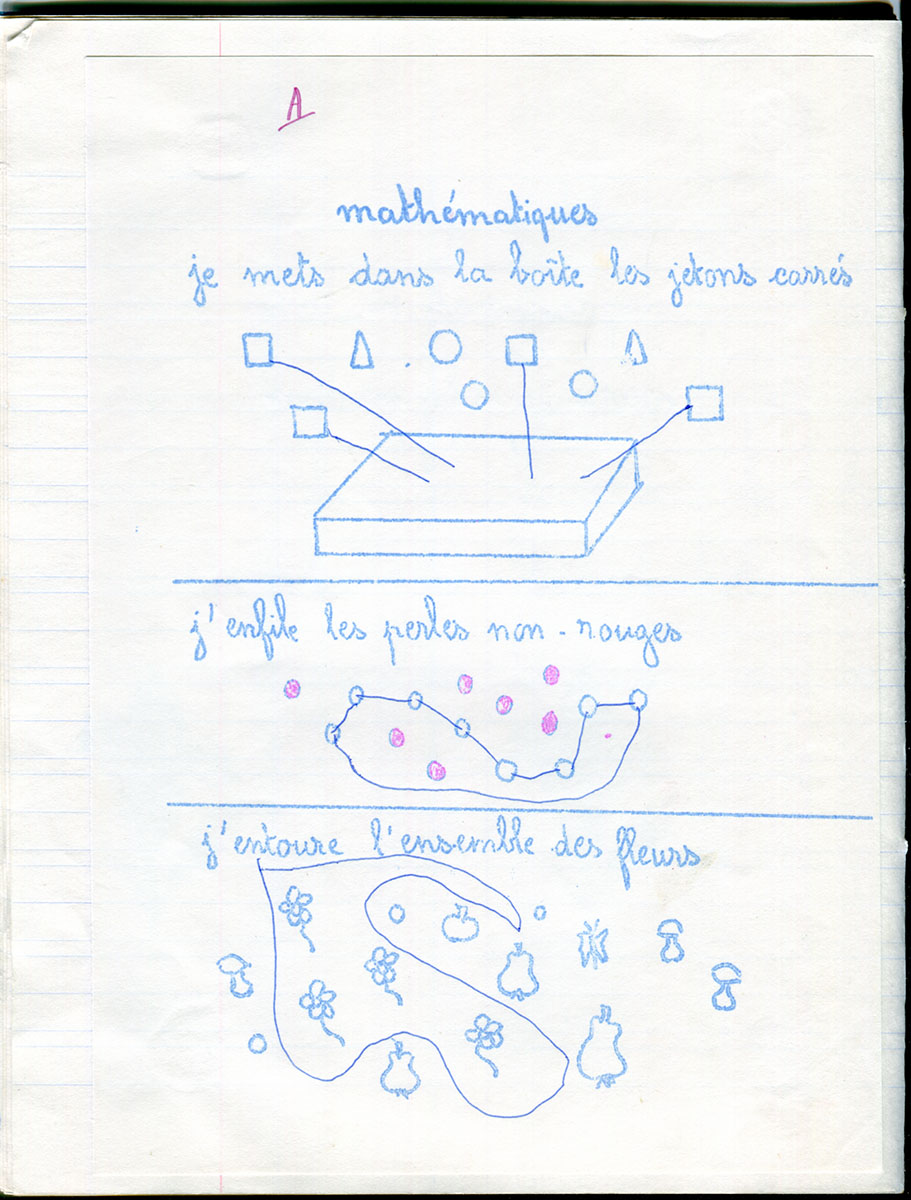 A
mathématiques
je mets dans la boîte les jetons carrés
j'enfile les perles non-rouges
j'entoure l'ensemble des fleurs